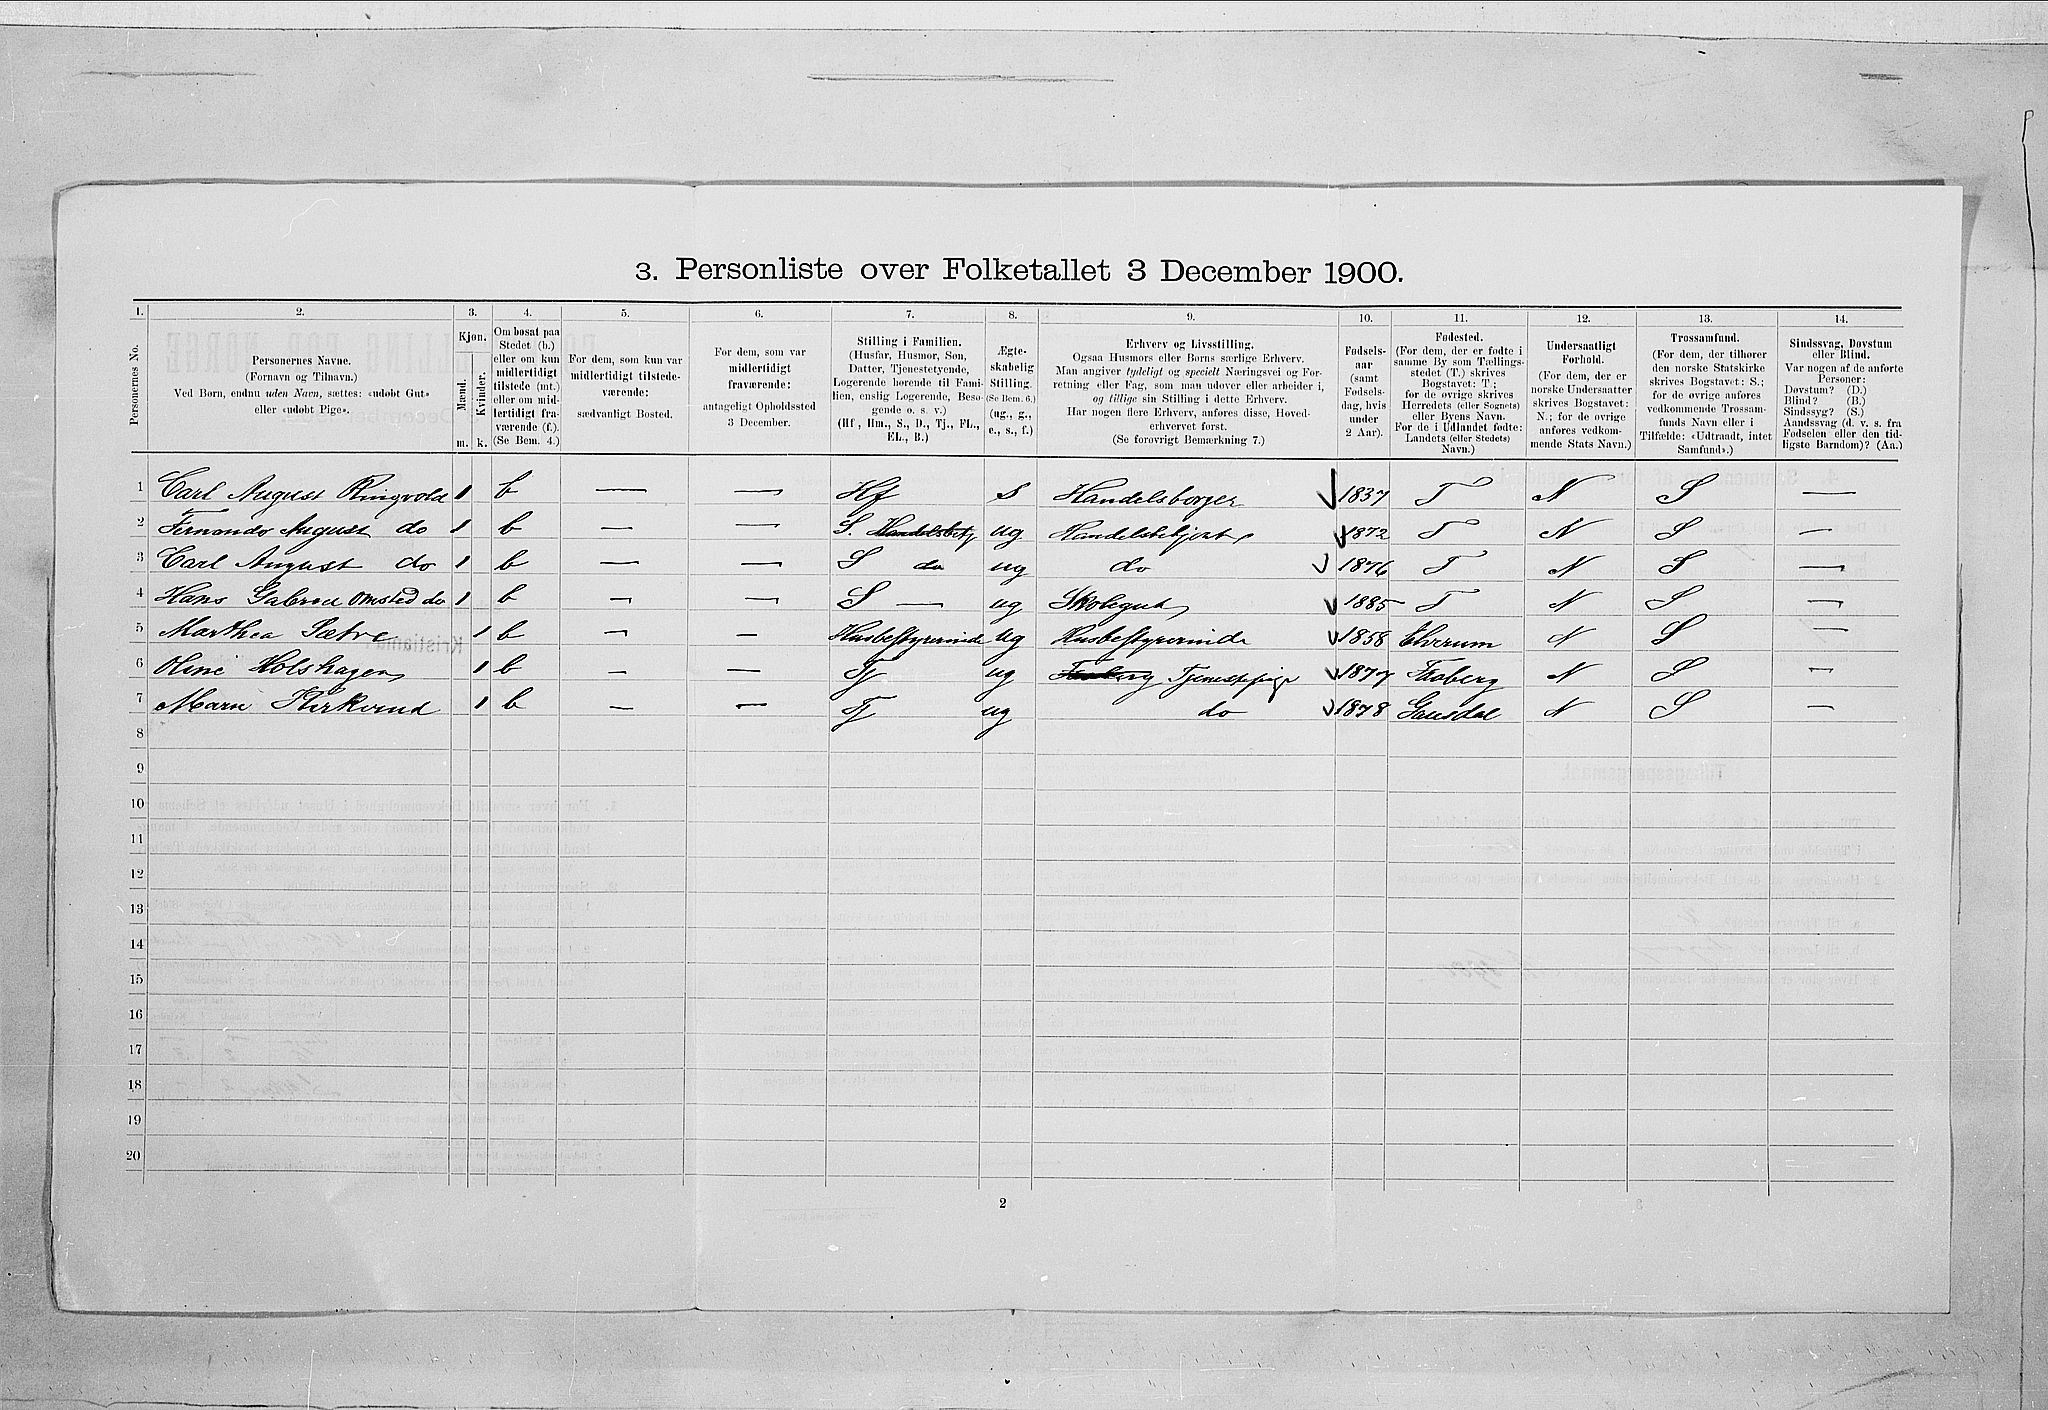 3. Personliste over Folketallet 3 December 1900.
1. 2. 3. 4. 5. 6. 7. 8. 9. 10. 11. 12. 13. 14.
Personernes No.
Personernes Navne.
(Fornavn og Tilnavn.)
Ved Børn, endnu uden Navn, sættes: «udøbt Gut»
eller «udøbt Pige».
Kjøn.
Mænd.
Kvinder.
m. k.
Om bosat paa
Stedet (b.)
eller om kun
midlertidigt
tilstede (mt.)
eller om mid-
lertidigt fra-
værende (f.).
(Se Bem. 4.)
For dem, som kun var
midlertidigt tilstede-
værende:
sædvanligt Bosted.
For dem, som var
midlertidigt
fraværende:
antageligt Opholdssted
3 December.
Stilling i Familien.
(Husfar, Husmor, Søn,
Datter, Tjenestetyende,
Logerende hørende til Fami-
lien, enslig Logerende, Besø-
gende o. s. v.)
(Hf., Hm., S., D., Tj., FL.,
EL., B.)
Ægte-
skabelig
Stilling.
(Se Bem. 6.)
(ug., g.,
e., s., f.)
Erhverv og Livsstilling.
Ogsaa Husmors eller Børns særlige Erhverv.
Man angiver tydeligt og specielt Næringsvei og For-
retning eller Fag, som man udover eller arbeider i,
og tillige sin Stilling i dette Erhverv.
Har nogen flere Erhverv, anføres disse, Hoved-
erhvervet først.
(Se forøvrigt Bemærkning 7.)
Fødsels-
aar
(samt
Fødsels-
dag, hvis
under
2 Aar).
Fødested.
(For dem, der er fødte i
samme By som Tællings-
stedet (T.) skrives
Bogstavet: T.;
for de øvrige skrives
Herredets (eller Sognets)
eller Byens Navn.
For de i Udlandet fødte:
Landets (eller Stedets)
Navn.)
Undersaatligt
Forhold.
(For dem, der er
norske Undersaatter
skrives Bogstavet:
N.; for de øvrige
anføres vedkom-
mende Stats Navn.)
Trossamfund.
(For dem, der tilhører
den norske Statskirke
skrives Bogstavet: S.;
for de øvrige anføres
vedkommende Trossam-
funds Navn eller i
Tilfælde: «Udtraadt, intet
Samfund».)
Sindssvag, Døvstum
eller Blind.
Var nogen af de anførte
Personer:
Døvstum? (D.)
Blind? (B.)
Sindssyg? (S.)
Aandssvag (d. v. s. fra
Fødselen eller den tid-
ligste Barndom)? (Aa.)
1 Carl August Ringvold 1 b — — Hf S Handelsborger 1837 T N S —
2 Fernando August do 1 b — — S. Handelsbetj ug Handelsbetjent 1872 T N S —
3 Carl August do 1 b — — S do ug do 1876 T N S —
4 Hans Gabriel Omsted do 1 b — — S — ug Skolegut 1885 T N S —
5 Marthea Sætre 1 b — — Husbestyrerinde ug Husbestyrerinde 1858 Elverum N S —
6 Oline Holshagen 1 b — — Tj ug Tjenestepige 1877 Faaberg N S —
7 Marie Kirkerud 1 b — — Tj ug do 1878 Gausdal N S —
8
9
10
11
12
13
14
15
16
17
18
19
20
2